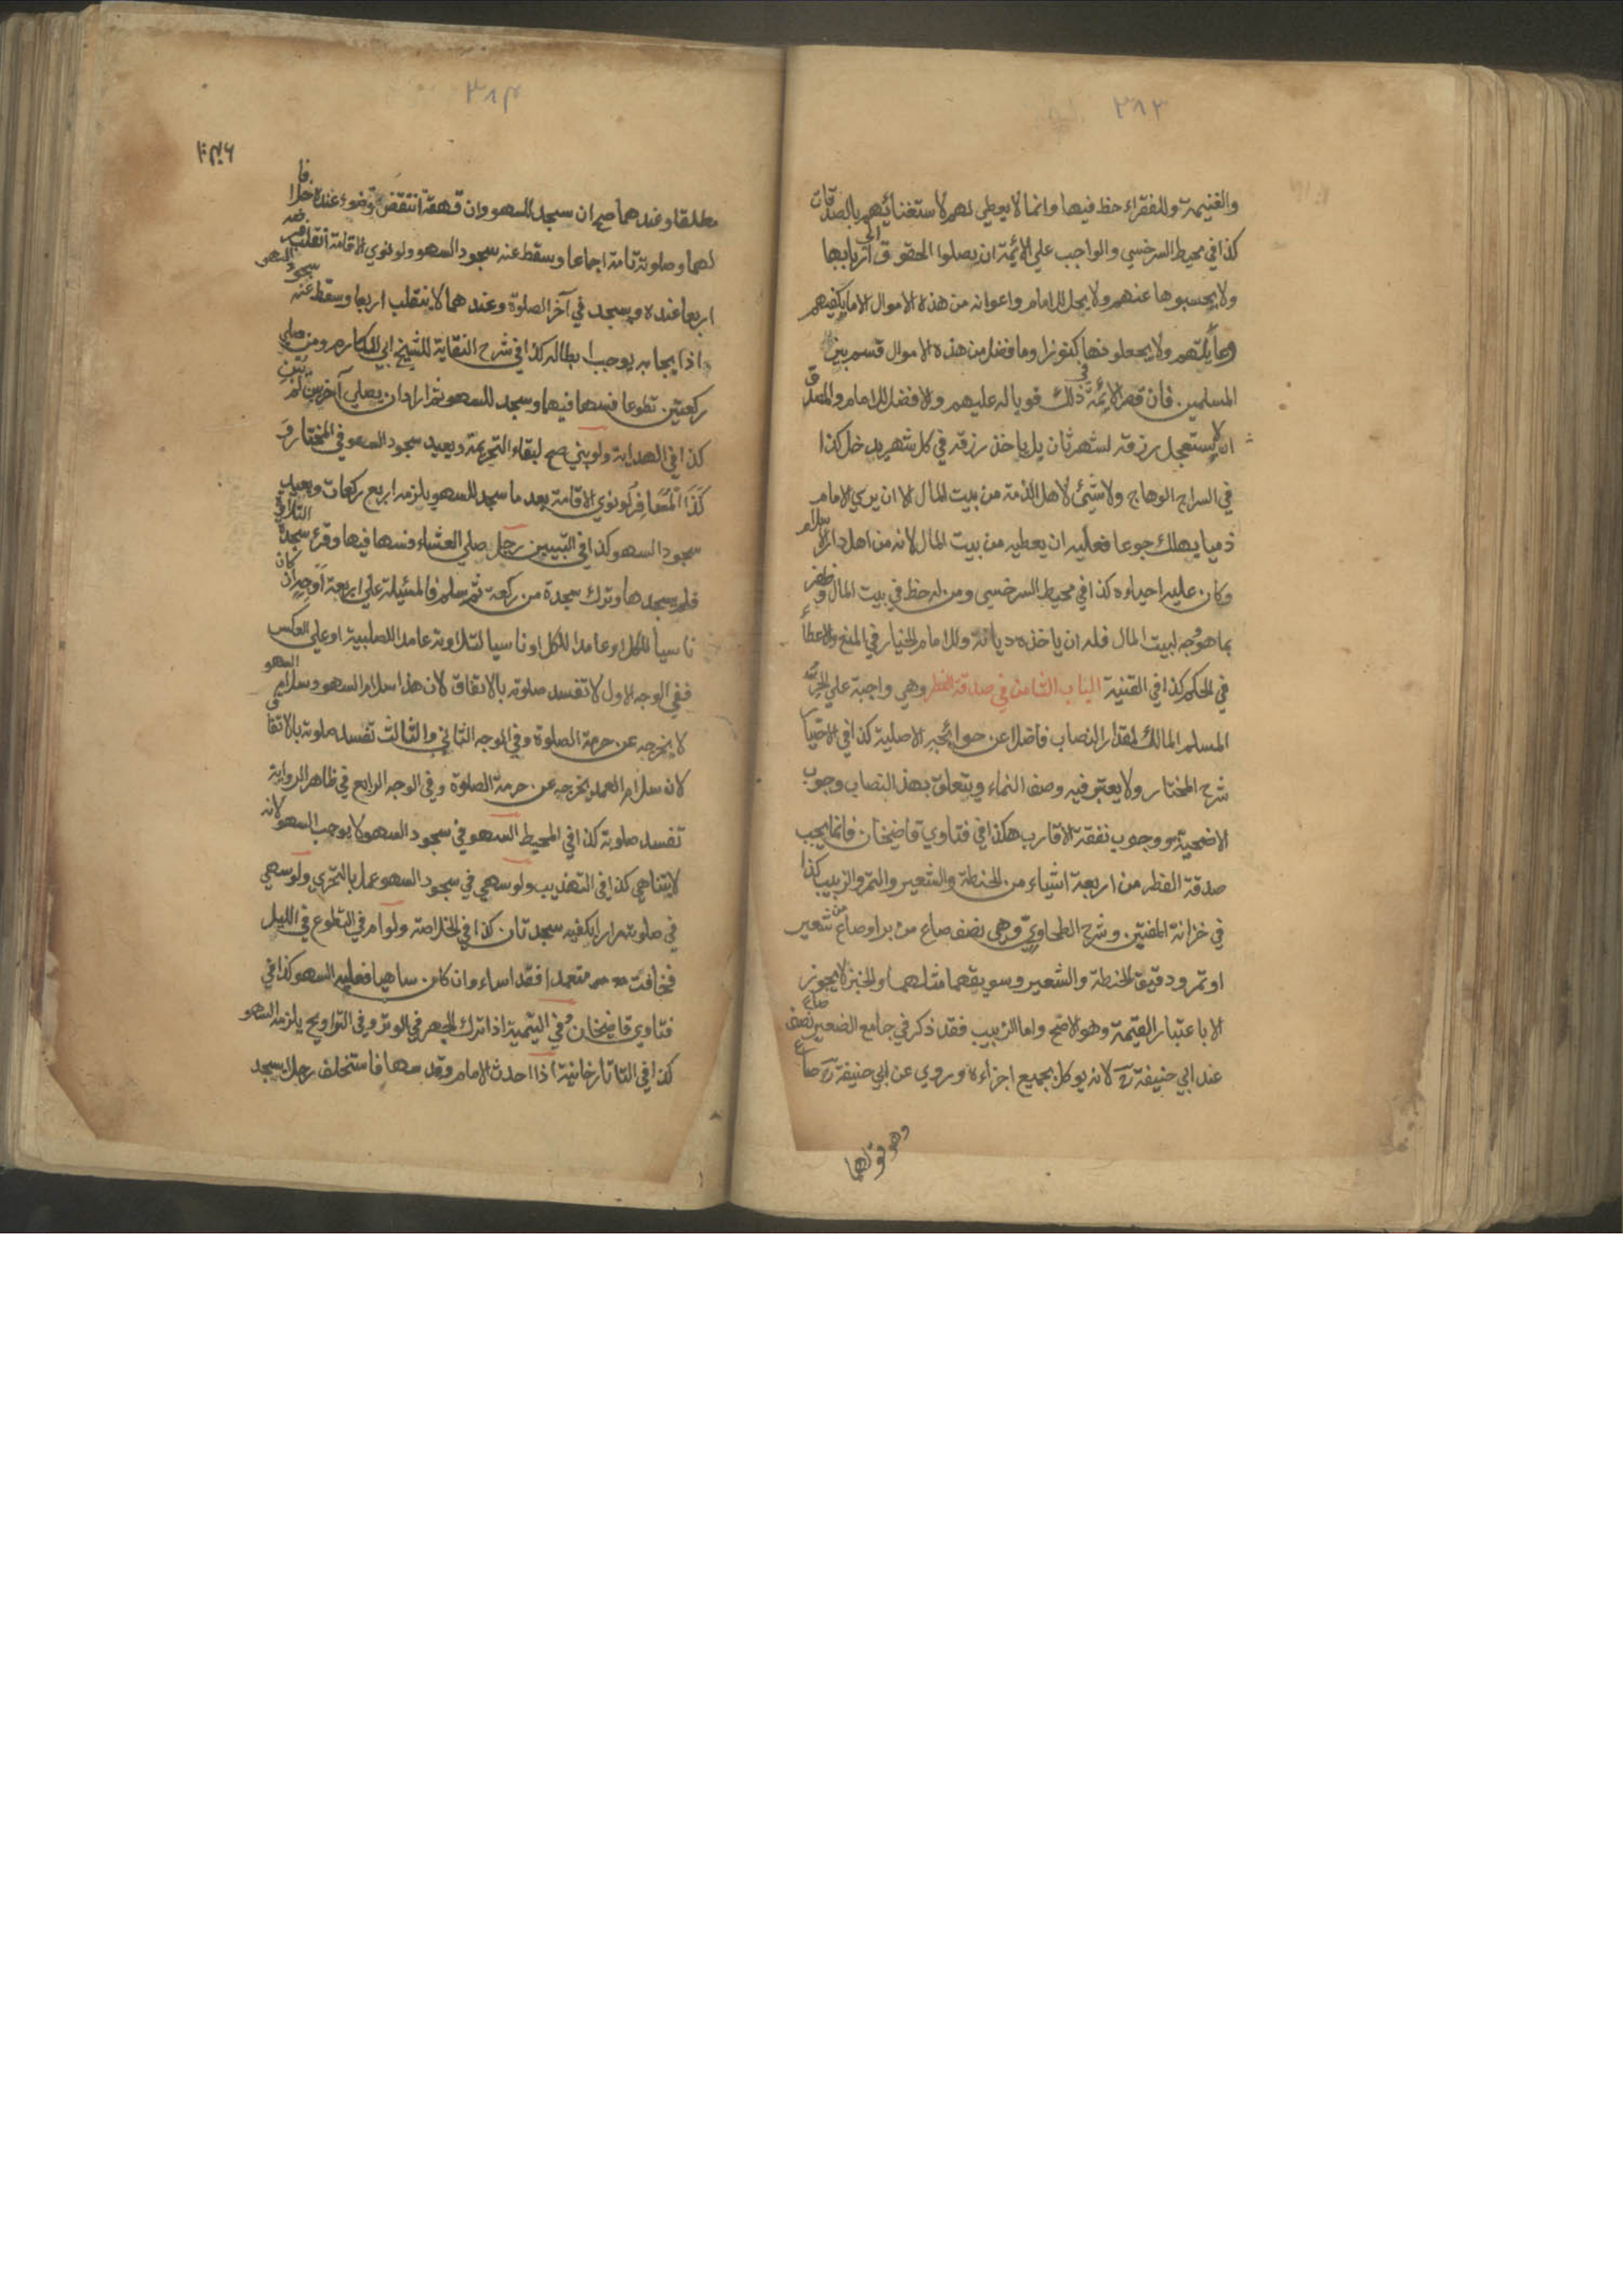 ٣٨٣
والغنيمة وللفقراء حظ فيها وانما لا يعطي لهم لاستغنائهم بالصدقات
كذا في محيط السرخسي والواجب علي الائمة ان يصلوا الحقوق الي اربابها
ولا يحبسوها عنهم ولا يحل للامام واعوانه من هذه الاموال الا ما يكفيهم
وعايلتهم ولا يجعلونها كنوزا وما فضل من هذه الاموال قسم بين
المسلمين فان قصر الائمة في ذلك فوباله عليهم والافضل للامام والمصدق
ان لا يستعجل رزقه لشهر ثان بل ياخذ رزقه في كل شهر يدخل كذا
في السراج الوهاج ولا شيئ لاهل الذمة من بيت المال الا ان يري الامام
ذميا يهلك جوعا فعليه ان يعطيه من بيت المال لانه من اهل دار الاسلام
وكان عليه احياءه كذا في محيط السرخسي ومن له حظ في بيت المال وظفر
بما هو وجه لبيت المال فله ان ياخذه ديانة وللامام الخيار في المنع والاعطاء
في الحكم كذا في القنية الباب الثامن في صدقة الفطر وهي واجبة علي الحر
المسلم المالك لمقدار النصاب فاضلا عن حوائجه الاصلية كذا في الاختيار
شرح المختار ولا يعتبر فيه وصف النماء ويتعلق بهذا النصاب وجوب
الاضحية ووجوب نفقة الاقارب هكذا في فتاوي قاضيخان فانما يجب
صدقة الفطر من اربعة اشياء من الحنطة والشعير والتمر والزبيب كذا
في خزانة المفتين وشرح الطحاوي وهي نصف صاع من بر او صاع من شعير
او تمر ودقيق الحنطة والشعير وسويقهما مثلهما والخبز لا يجوز
الا باعتبار القيمة وهو الاصح واما الزبيب فقد ذكر في جامع الصغير نصف صاع
عند ابي حنيفة رح لانه يوكل بجميع اجزاءه وروي عن ابي حنيفة رح صاع
وهو قولهما
٣٨٤
مطلقا وعندهما صح ان سجد للسهو وان قهقه انتقض وضوء عنده خلافا
لهما وصلوته تامة اجماعا وسقط عنه سجود السهو ولو نوي الاقامة انقلب فرضه
اربعا عنده ويسجد في آخر الصلوة وعندهما لا ينقلب اربعا وسقط عنه سجود السهو
اذا ايجابه يوجب ابطاله كذا في شرح النقاية للشيخ ابي المكارم ومن صلي
ركعتين تطوعا فسها فيها وسجد للسهو ثم اراد ان يصلي آخريين لم يبن
كذا في الهداية ولو بني صح لبقاء التحريمة ويعيد سجود السهو في المختار و
كذا المسافر لو نوي الاقامة بعد ما سجد للسهو يلزمه اربع ركعات ويعيد
سجود السهو كذا في التبيين رجل صلي العشاء فسها فيها وقرء سجدة التلاوة
فلم يسجدها وترك سجدة من ركعة ثم سلم فالمسئيلة علي اربعة اوجه ان كان
ناسيا للكل او عامدا للكل او ناسيا للتلاوة عامدا للصلبية او علي العكس
ففي الوجه الاول لا تفسد صلوته بالاتفاق لان هذا سلام السهو وسلام السهو
لا يخرجه عن حرمة الصلوة وفي الوجه الثاني والثالث تفسد صلوته بالاتفاق
لانه سلام العمد يخرجه عن حرمة الصلوة وفي الوجه الرابع في ظاهر الرواية
تفسد صلوته كذا في المحيط السهو في سجود السهو لا يوجب السهو لانه
لا يتناهي كذا في التهذيب ولو سهي في سجود السهو عمل بالتحري ولو سهي
في صلوته مرارا يكفيه سجدتان كذا في الخلاصة ولو ام في التطوع في الليل
فخافت متعمدا فقد اساء وان كان ساهيا فعليه السهو كذا في
فتاوي قاضيخان وفي اليتمية اذا ترك الجهر في الوتر وفي التراويح يلزمه السهو
كذا في التاتارخانية اذا احدث الامام وقد سها فاستخلف رجلا يسجد